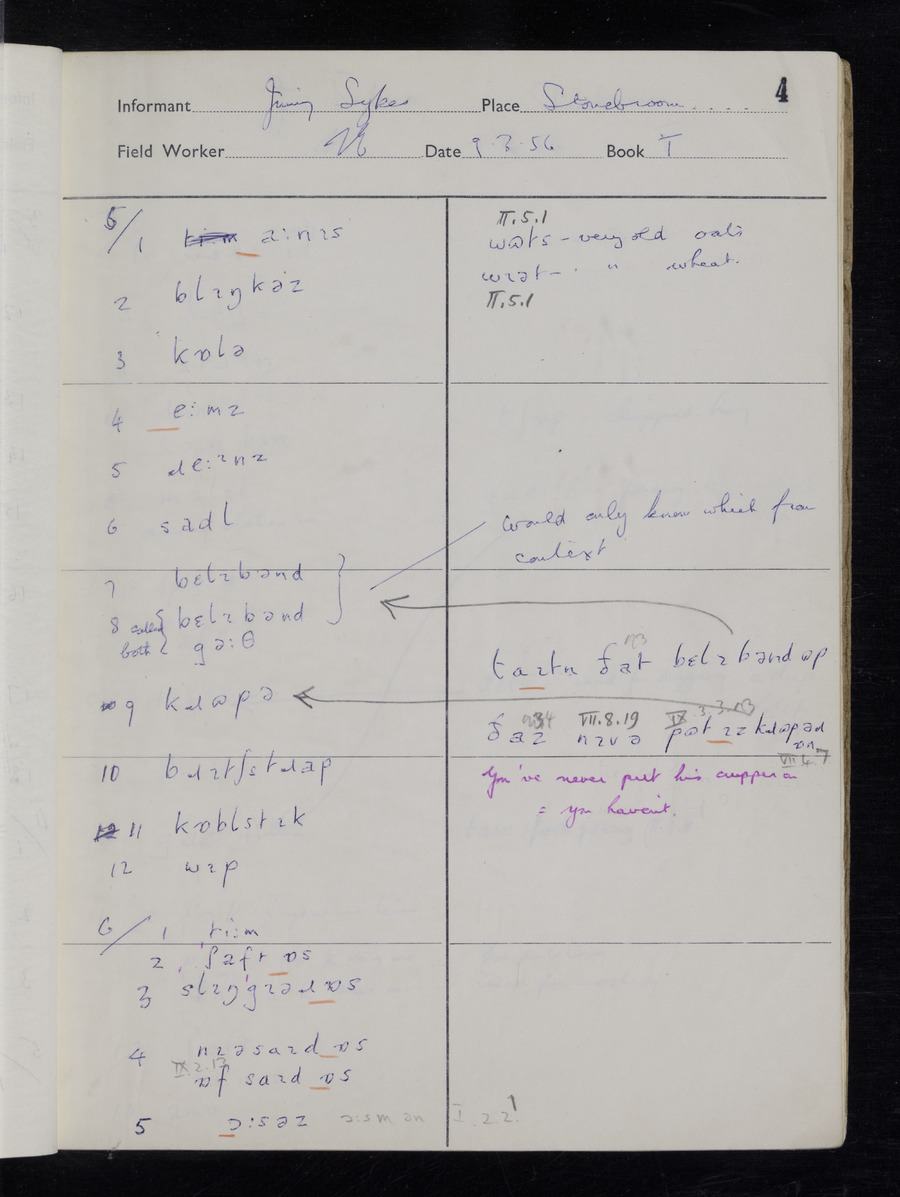 4
Informant Jimmy Sykes Place Stonebroom
Field Worker Date 9.3.56 Book I
5/1 a:nɪs
2 blɪŋkəz
3 kɒlə
4 e:mz
5 de:ɪnz
6 sadl
7 bɛlɪbənd
8 called both { bɛlɪbənd
gə:θ
9 kɹɷpə
10 bɹɪtʃstɹap
11 kɒblstɪk
12 wɪp
6/1 ti:m
2 ʃaft ɒs
3 slɪŋgɪəɹ ɒs
4 nɪəsaɪd ɒs
IX.2.13
ɒf saɪd ɒs
5 ɔ:səz ɔ:smən I.2.2
II.5.1
wɷts – very old oats
wɪət – " wheat.
II.5.1
Would only know which from
context
taɪtn ðat bɛlɪbənd ɷp
VII.8.19 IX.3.3
ðaz nɪvə pɷt ɪz kɹɷpəɹ ɒn
VII.4.7
You've never put his crupper on
= you haven't.